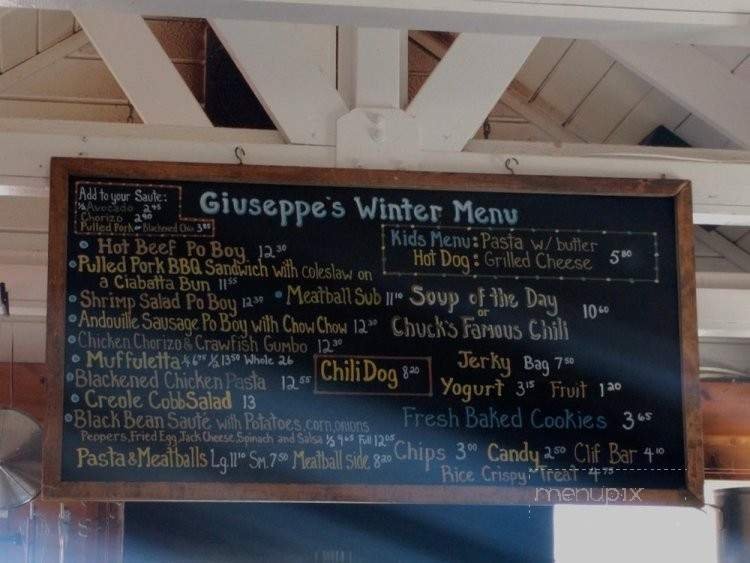 Giuseppe's Winter Menu
Add to your Saute:
½ Avocado 2.95
Chorizo 2.90
Pulled Pork or Blackened Chix 3.85
Kids Menu: Pasta w/ butter
Hot Dog: Grilled Cheese 5.80
Hot Beef Po Boy 12.30
Pulled Pork BBQ Sandwich with coleslaw on
a Ciabatta Bun 11.55
Shrimp Salad Po Boy 12.30
Meatball Sub 11.10
Andouille Sausage Po Boy with Chow Chow 12.30
Chicken, Chorizo & Crawfish Gumbo 12.30
Muffuletta ¼ 6.75 ½ 13.50 Whole 26
Blackened Chicken Pasta 12.55
Creole Cobb Salad 13
Black Bean Sauté with Potatoes, corn, onions
Peppers, Fried Egg, Jack Cheese, Spinach and Salsa ½ 9.65 Full 12.05
Pasta & Meatballs Lg. 11.10 Sm. 7.50 Meatball side 8.20
Soup of the Day
or
Chuck's Famous Chili
10.60
Chili Dog 8.20
Jerky Bag 7.50
Yogurt 3.15 Fruit 1.20
Fresh Baked Cookies 3.65
Chips 3.00 Candy 2.50 Clif Bar 4.10
Rice Crispy Treat 4.75
menupix